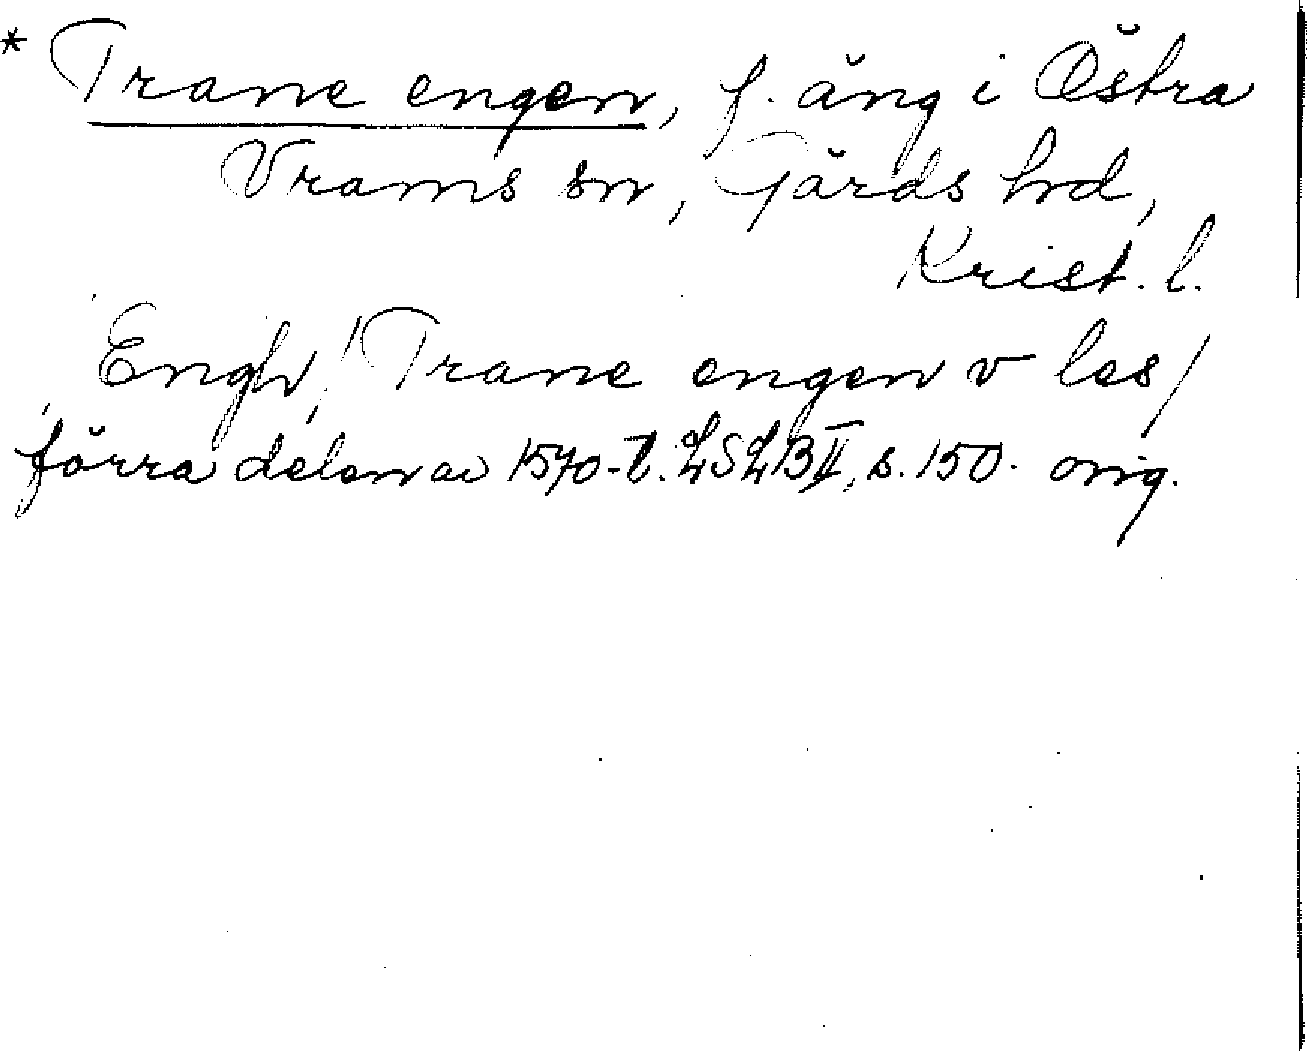 * Trane engen, f. äng i Östra
Vrams sn, Gärds hd,
Krist. l.
Engh, / Trane engen v les /
förra delen av 1570-t. LSLB II, s. 150. orig.